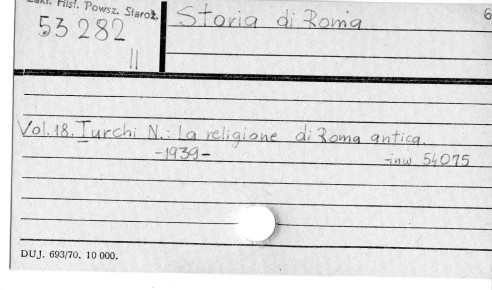 Zakł. Hist. Powsz. Staroż.
53 282
II
Storia di Roma
6
Vol. 18. Turchi N.: La religione di Roma antica.
-1939-
-inw 54075
DUJ. 693/70. 10 000.